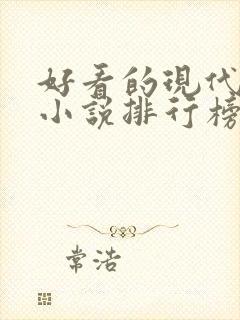 好看的现代
小说排行榜
常浩